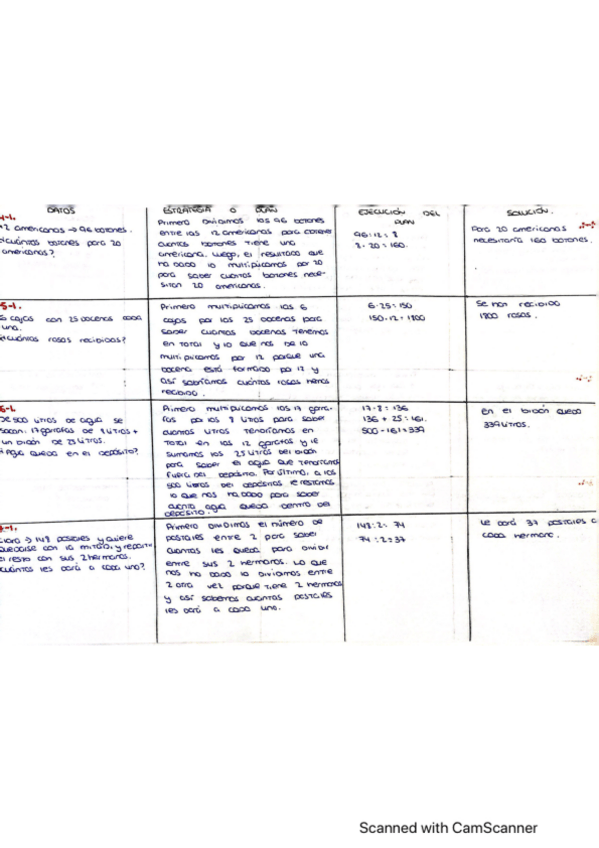 DATOS
ESTRATEGIA O PLAN
EJECUCIÓN DEL PLAN
SOLUCIÓN.
4-1.
12 americanas → 96 botones.
¿cuántos botones para 20
americanas?
Primero dividimos los 96 botones
entre las 12 americanas para obtener
cuantos botones tiene una
americana. Luego, el resultado que
ha dado lo multiplicamos por 20
para saber cuantos botones nece-
sitan 20 americanas.
96:12 = 8
8·20 = 160.
Para 20 americanas
necesitaría 160 botones.
5-1.
6 cajas con 25 docenas cada
una.
¿cuántas rosas recibidas?
Primero multiplicamos las 6
cajas por las 25 docenas para
saber cuantas docenas tenemos
en total y lo que nos da lo
multiplicamos por 12 porque una
docena está formada por 12 y
así sabríamos cuántas rosas hemos
recibido.
6·25 = 150
150·12 = 1800
Se han recibido
1800 rosas.
6-1.
De 500 litros de agua se
sacan: 17 garrafas de 8 litros +
un bidón de 25 litros.
¿Agua queda en el depósito?
Primero multiplicamos las 17 garra-
fas por los 8 litros para saber
cuantos litros tendríamos en
total en las 12 garrafas y le
sumamos los 25 litros del bidón
para saber el agua que tendríamos
fuera del depósito. Por último, a los
500 litros del depósitos le restamos
lo que nos ha dado para saber
cuanta agua queda dentro del
depósito.
17·8 = 136
136 + 25 = 161.
500 - 161 = 339
En el bidón queda
339 litros.
-1.
Clara → 148 postales y quiere
quedarse con la mitad, y repartir
el resto con sus 2 hermanos.
¿cuántas les dará a cada uno?
Primero dividimos el número de
postales entre 2 para saber
cuantas les queda para dividir
entre sus 2 hermanos. Lo que
nos ha dado lo dividimos entre
2 otra vez porque tiene 2 hermanos
y así sabemos cuantas postales
les dará a cada uno.
148:2 = 74
74:2 = 37
Le dará 37 postales a
cada hermano.
Scanned with CamScanner